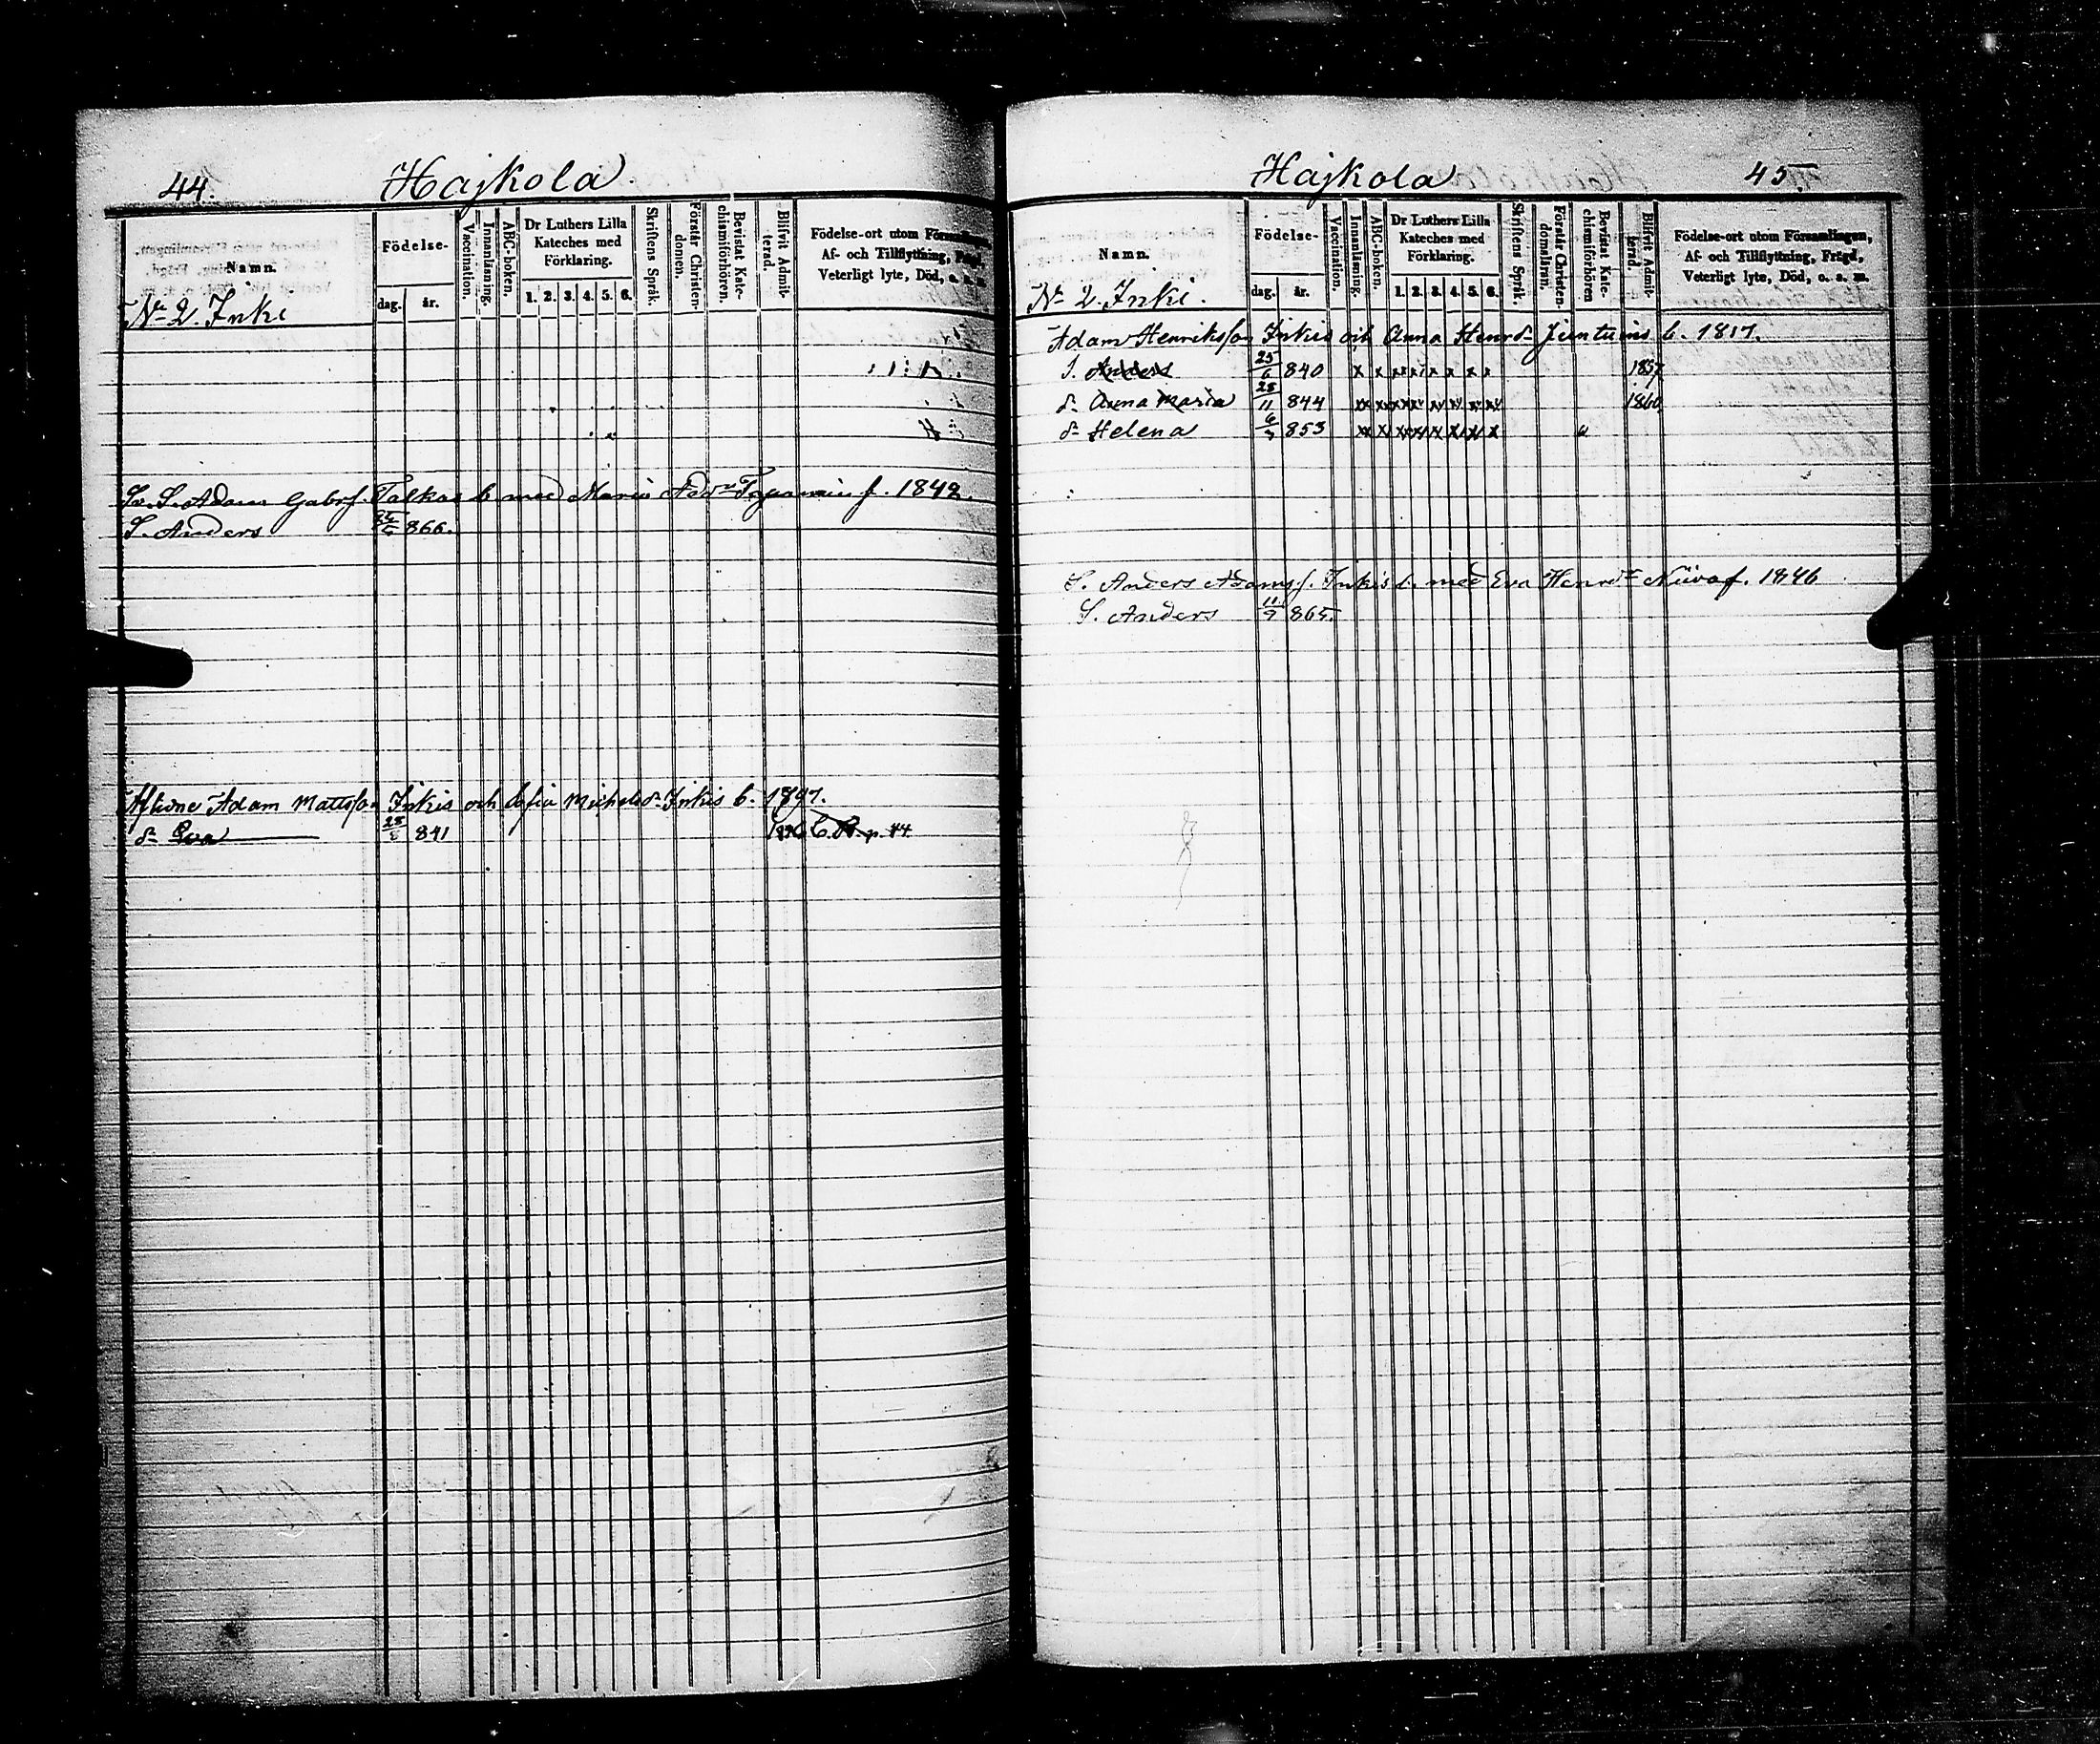 44. Hajkola
Namn.
Födelse-
dag. år.
Vaccination.
Innanläsning.
ABC-boken.
Dr Luthers Lilla
Kateches med
Förklaring.
1. 2. 3. 4. 5. 6.
Skriftens Språk.
Förstår Christen-
domen.
Bevistat Kate-
chismiförhören.
Blifvit Admit-
terad.
Födelse-ort utom Församlingen,
Af- och Tillflyttning, Frägd,
Veterligt lyte, Död, o. s. m.
No 2. Inki
Adam Gabrs. Talkas b med Maria f. 1842.
S. Anders 866.
Aflidne Adam Mattsson Inkis och Sofia Michelsd. Inkis b. 1797.
d. Eva 28/8 841 p. 44
Hajkola 45.
Namn.
Födelse-
dag. år.
Vaccination.
Innanläsning.
ABC-boken.
Dr Luthers Lilla
Kateches med
Förklaring.
1. 2. 3. 4. 5. 6.
Skriftens Språk.
Förstår Christen-
domsläran.
Bevistat Kate-
chismiförhören
Blifvit Admit-
terad.
Födelse-ort utom Församlingen,
Af- och Tillflyttning, Frägd,
Veterligt lyte, Död, o. s. m.
No 2. Inki.
Adam Henriksson Inkis och Anna Henrsd. Juntunis b. 1817.
S. Anders 25/6 840 x x x x x x x x x 1857
d. Anna Maria 28/11 844 xx xx xx x x x x x 1860
d. Helena 853 xx x xx x x x x x
S. Anders Adamss. Inkis b. med Eva Henrsd. f. 1846
S. Anders 11/9 865.